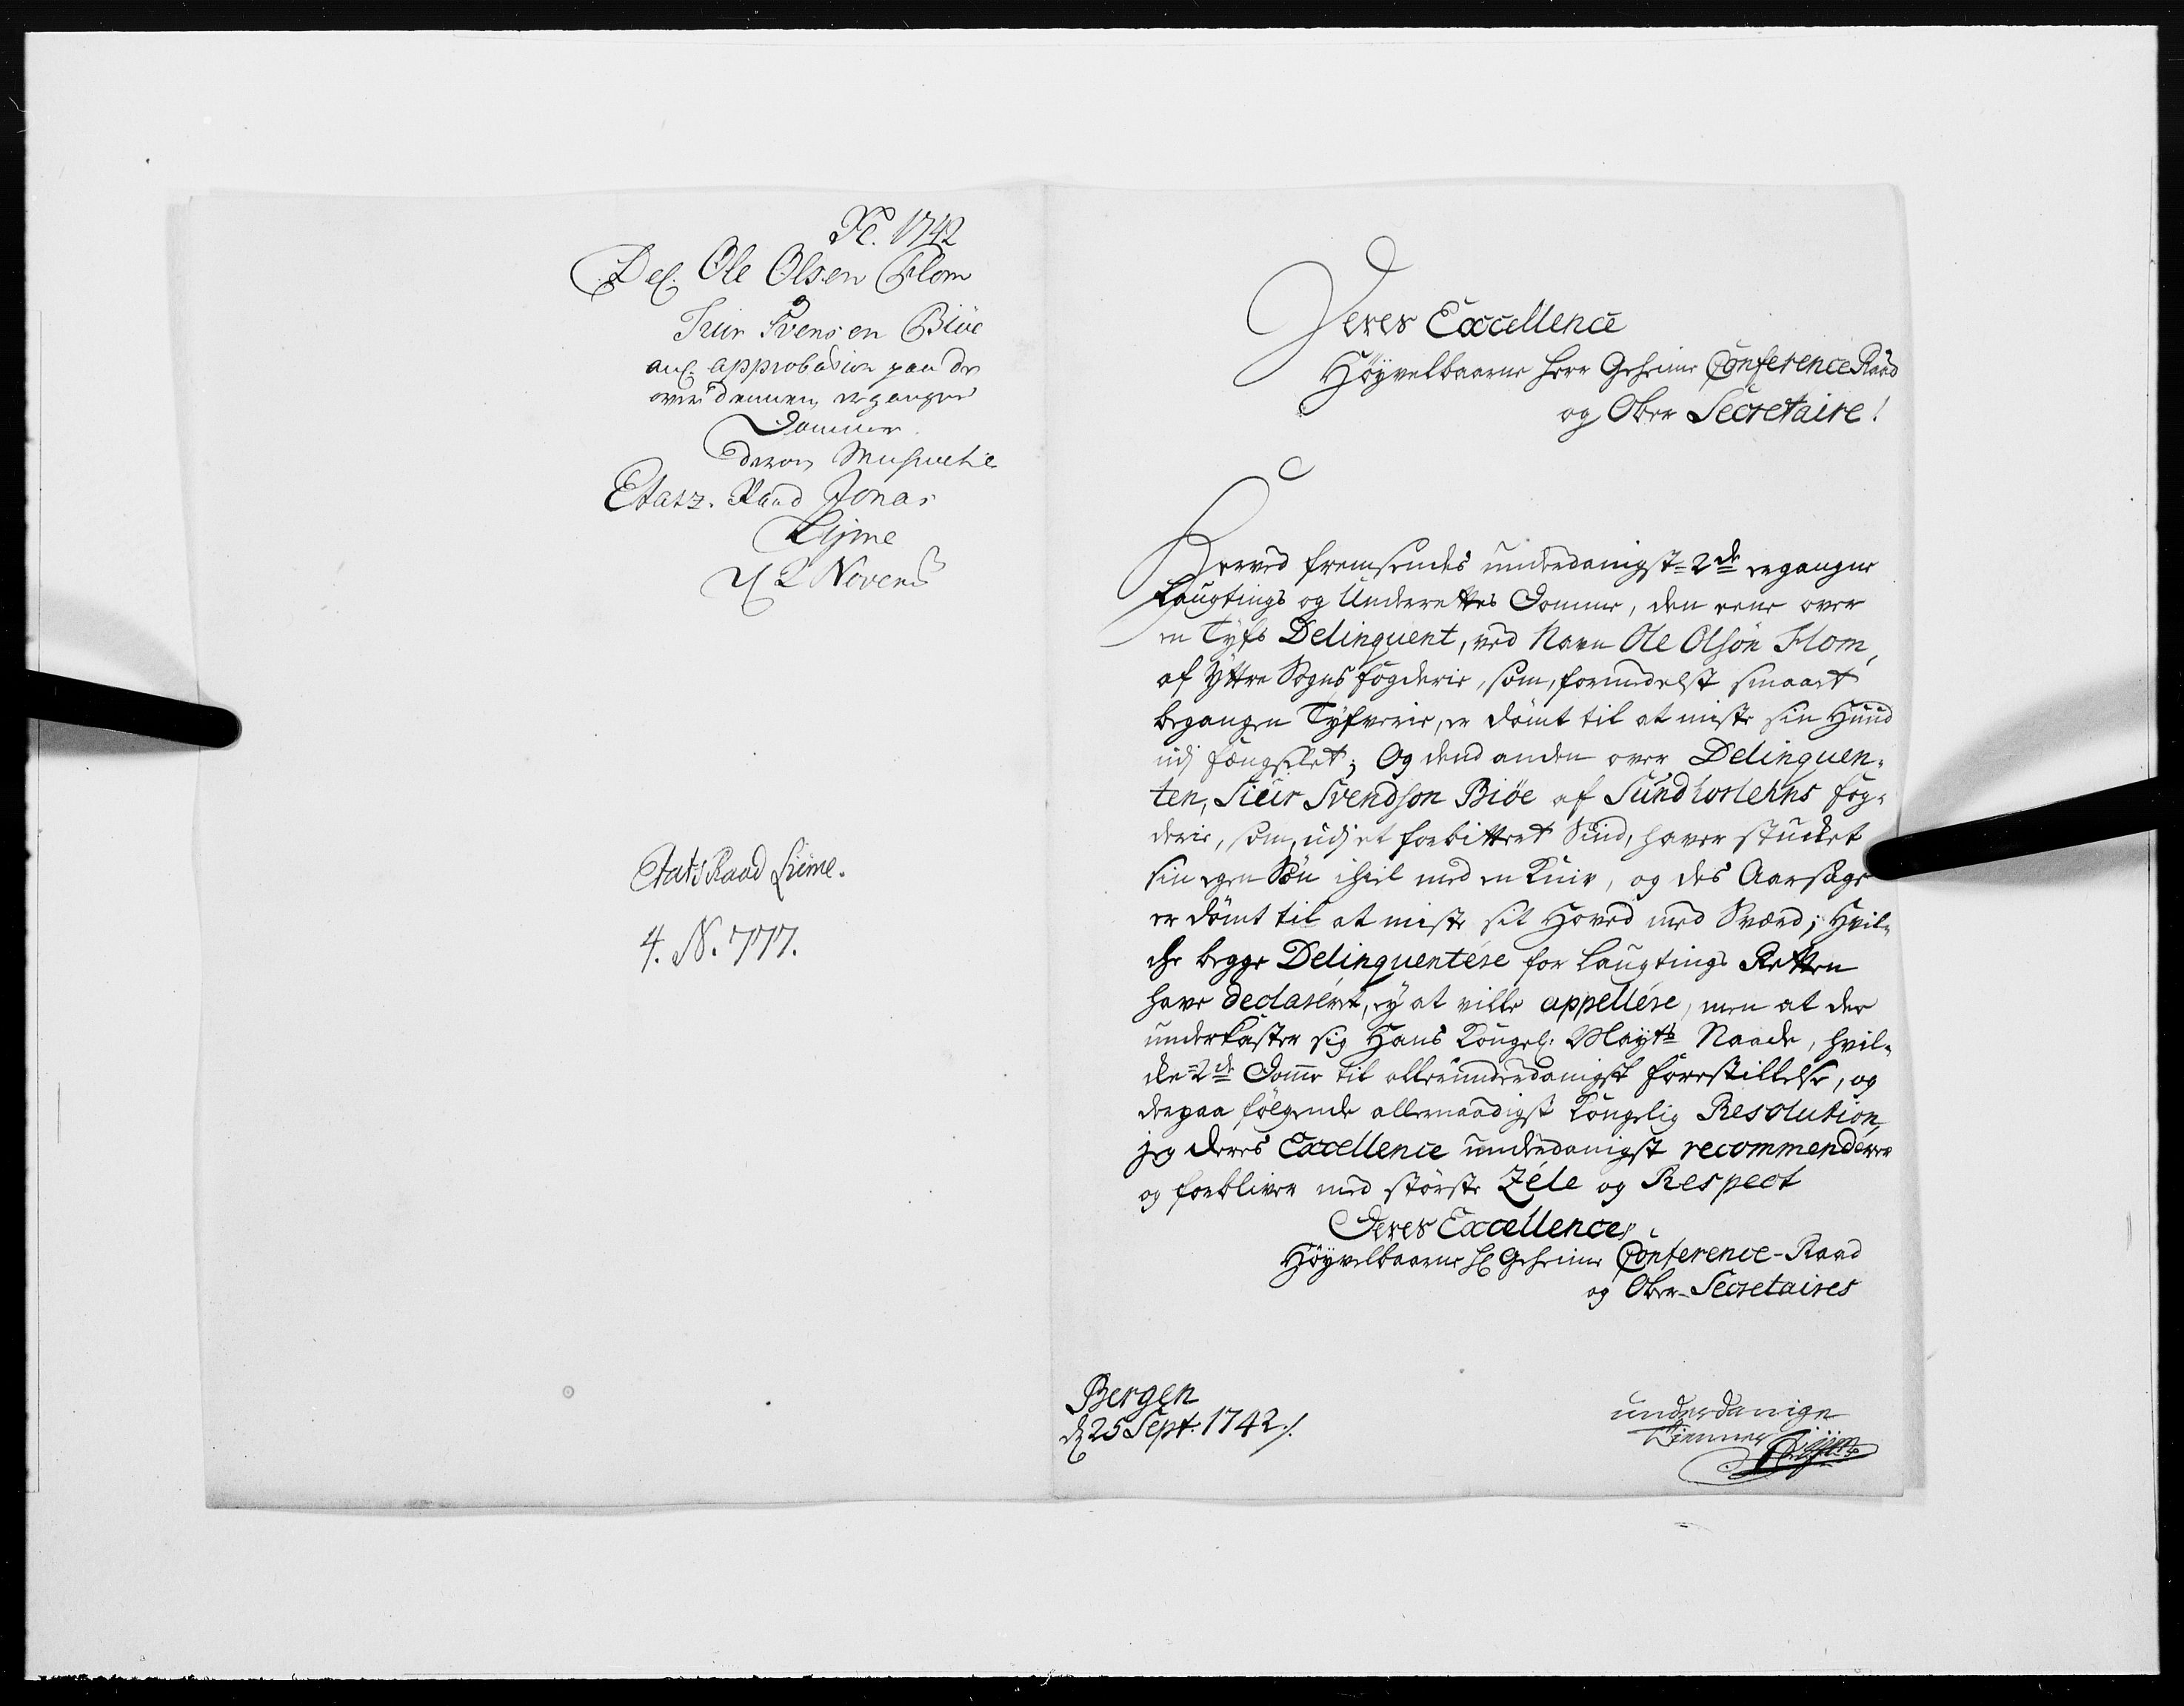 1742
Del. Ole Olsen Flom
og
Siur Svensen Biöe
anl. approbasion paa de
over dennem ergangne
Domme
Etatz. Raad Jonas
Lijme
2 Novemb
Etats Raad Lieme.
4. N. 777.
Deres Excellence
Höyvelbaarne Herr Geheime Conference Raad
og Ober Secretaire!
Herved fremsendes underdanigst 2de ergangne
Laugtings og Underrettes Domme, den eene over
en Tyfs Delinquent, ved Navn Ole Olsön Flom,
af Yttre Sogns fogderie, som, formedelst smaat
begangen Tyfverie, er dömt til at miste sin Huud
udj fængslet; Og dend anden over Delinquen-
ten, Siur Svendson Biöe af Sundhorlehns fog-
derie, som, udj et forbittret Sind, haver stucket
sin egen Sön ihiel med en Kniv, og des Aarsage
er dömt til at miste sit Hoved med Sværd; Hvil-
che begge Delinquentere for Laugtings Retten
have declareret, ey at ville appellere, men at de
underkaster sig Hans Kongel. Mayts Naade, hvil-
cke 2de Domme til allerunderdanigst forestillelse, og
derpaa fölgende allernaadigst Kongelig Resolution,
jeg Deres Excellence underdanigst recommenderer
og forbliver med störste Zele og Respect
Deres Excellences
Höyvelbaarne Hr Geheime Conference-Raad
og Ober-Secretaires
Bergen
d 25 Sept. 1742 ./.
underdanige
Tienner
Lijme